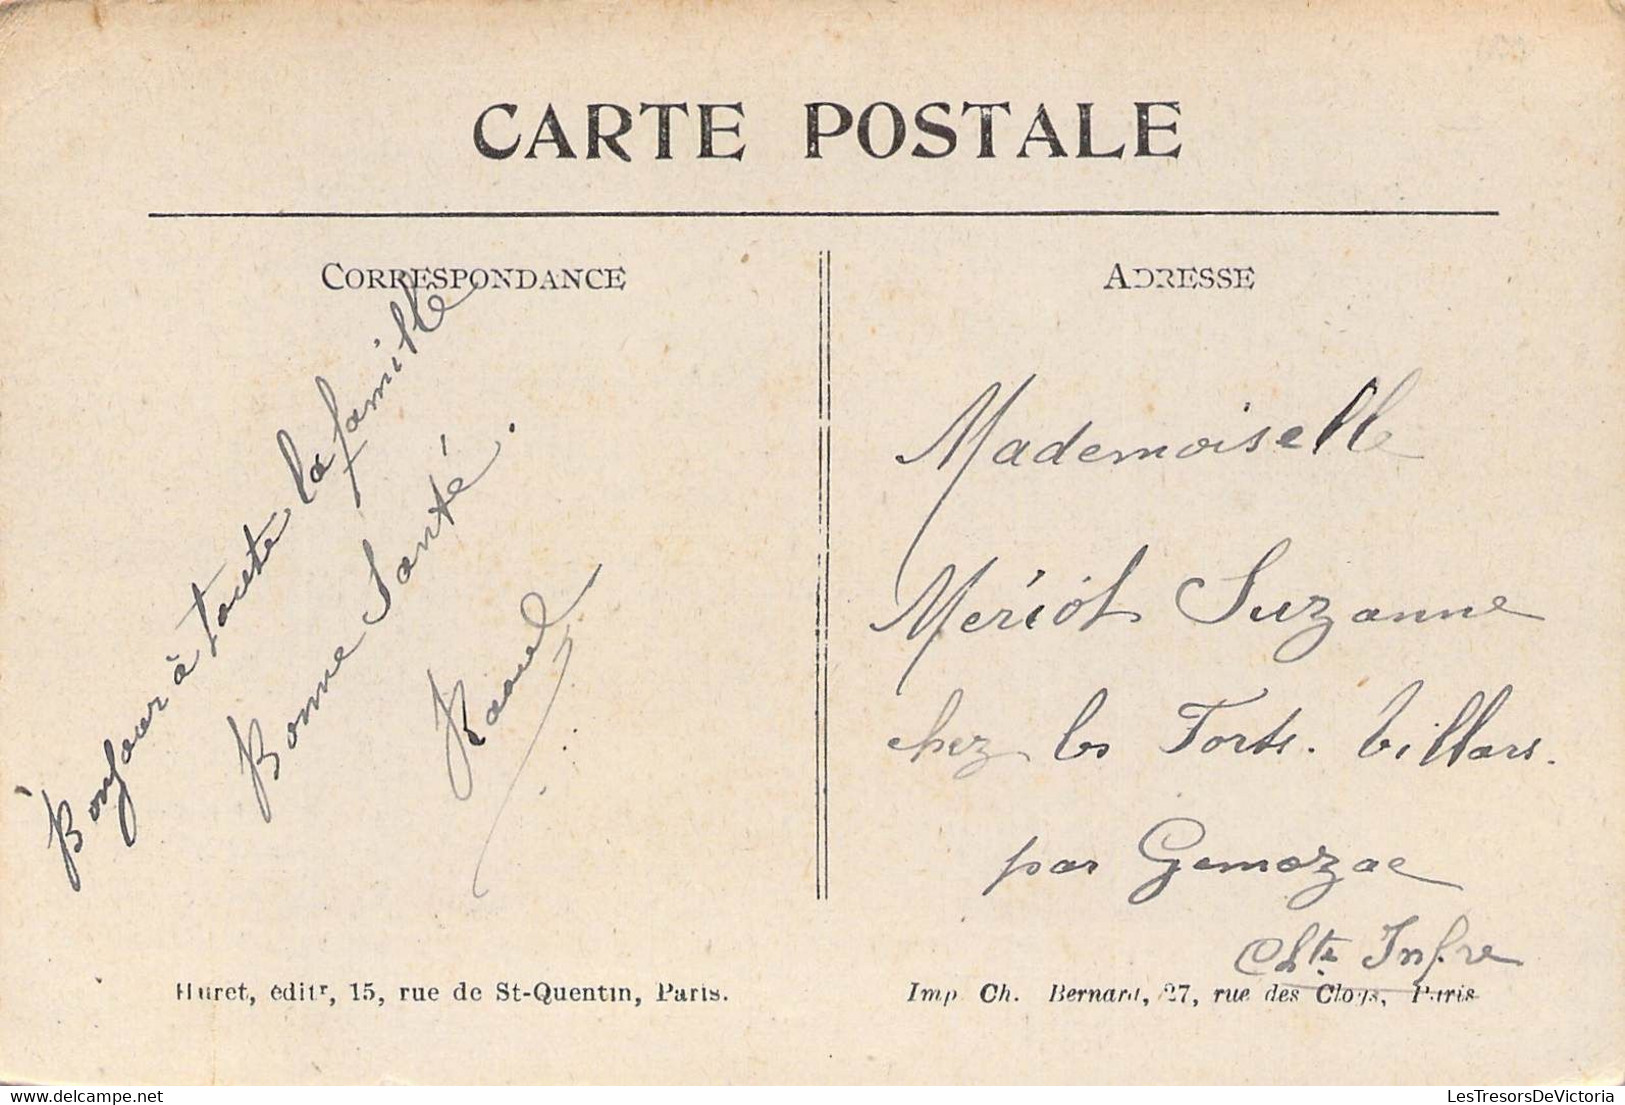 CARTE POSTALE
CORRESPONDANCE
Bonjour à toute la famille
Bonne Santé.
Raoul
ADRESSE
Mademoiselle
Meriot Suzanne
chez les Forts. Villars.
par Gemozac
Chte Infre
Huret, editr, 15, rue de St-Quentin, Paris.
Imp. Ch. Bernard, 27, rue des Cloys, Paris
delcampe.net
LesTresorsDeVictoria